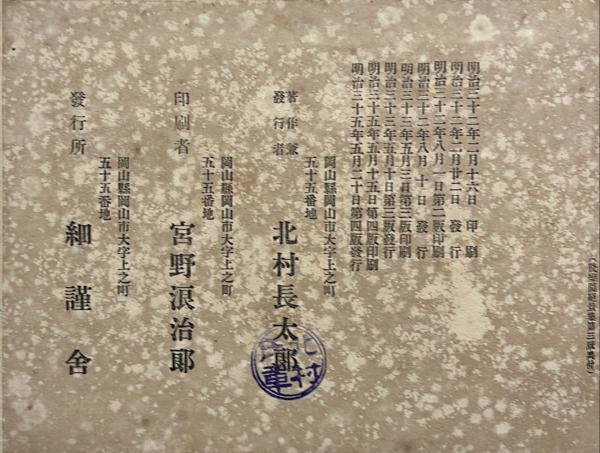 明治三十二年二月十六日印刷
明治三十二年二月廿二日發行
明治三十二年八月一日第二版印刷
明治三十二年八月十日發行
明治三十三年五月三日第三版印刷
明治三十三年五月十日第三版發行
明治三十五年五月十五日第四版印刷
明治三十五年五月二十日第四版發行
岡山縣岡山市大字上之町
五十五番地
著作兼
發行者
北村長太郎
岡山縣岡山市大字上之町
五十五番地
印刷者
宮野浪治郎
岡山縣岡山市大字上之町
五十五番地
發行所
細謹舍